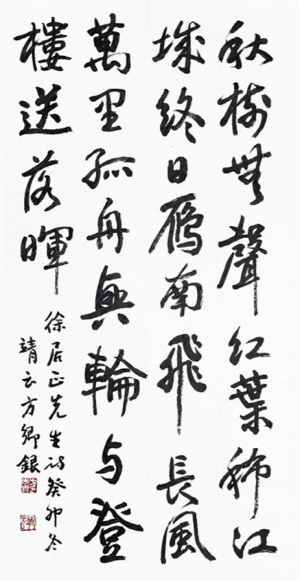 秋樹無聲紅葉稀江
城終日雁南飛長風
萬里孤舟興輪与登
樓送落暉
徐居正先生詩癸卯冬
靖云方卿銀